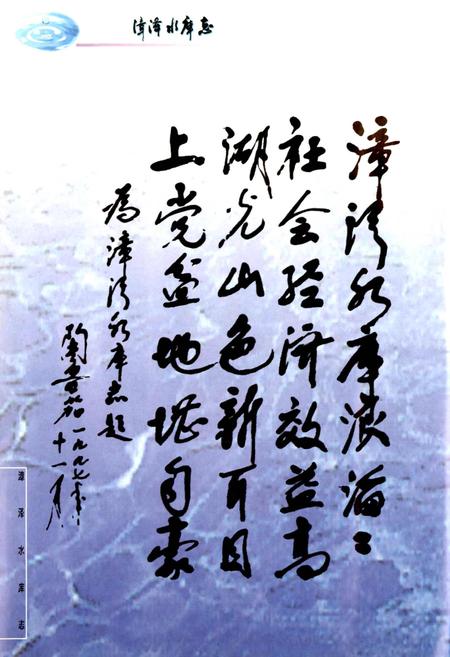 漳泽水库志
漳泽水库浪滔〻
社会经济效益高
湖光山色新耳目
上党盆地堪自豪
为漳泽水库志题
一九九七年
十一月
漳泽水库志